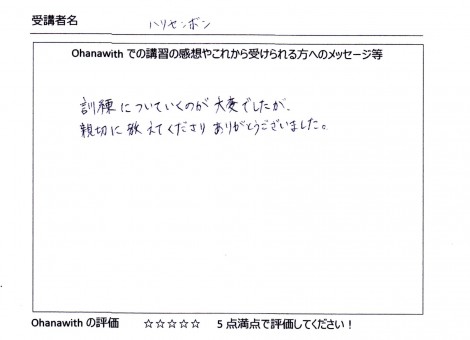 受講者名 ハリセンボン
Ohanawith での講習の感想やこれから受けられる方へのメッセージ等
訓練についていくのが大変でしたが、
親切に教えてくださりありがとうございました。
Ohanawith の評価 ☆☆☆☆☆ 5点満点で評価してください！